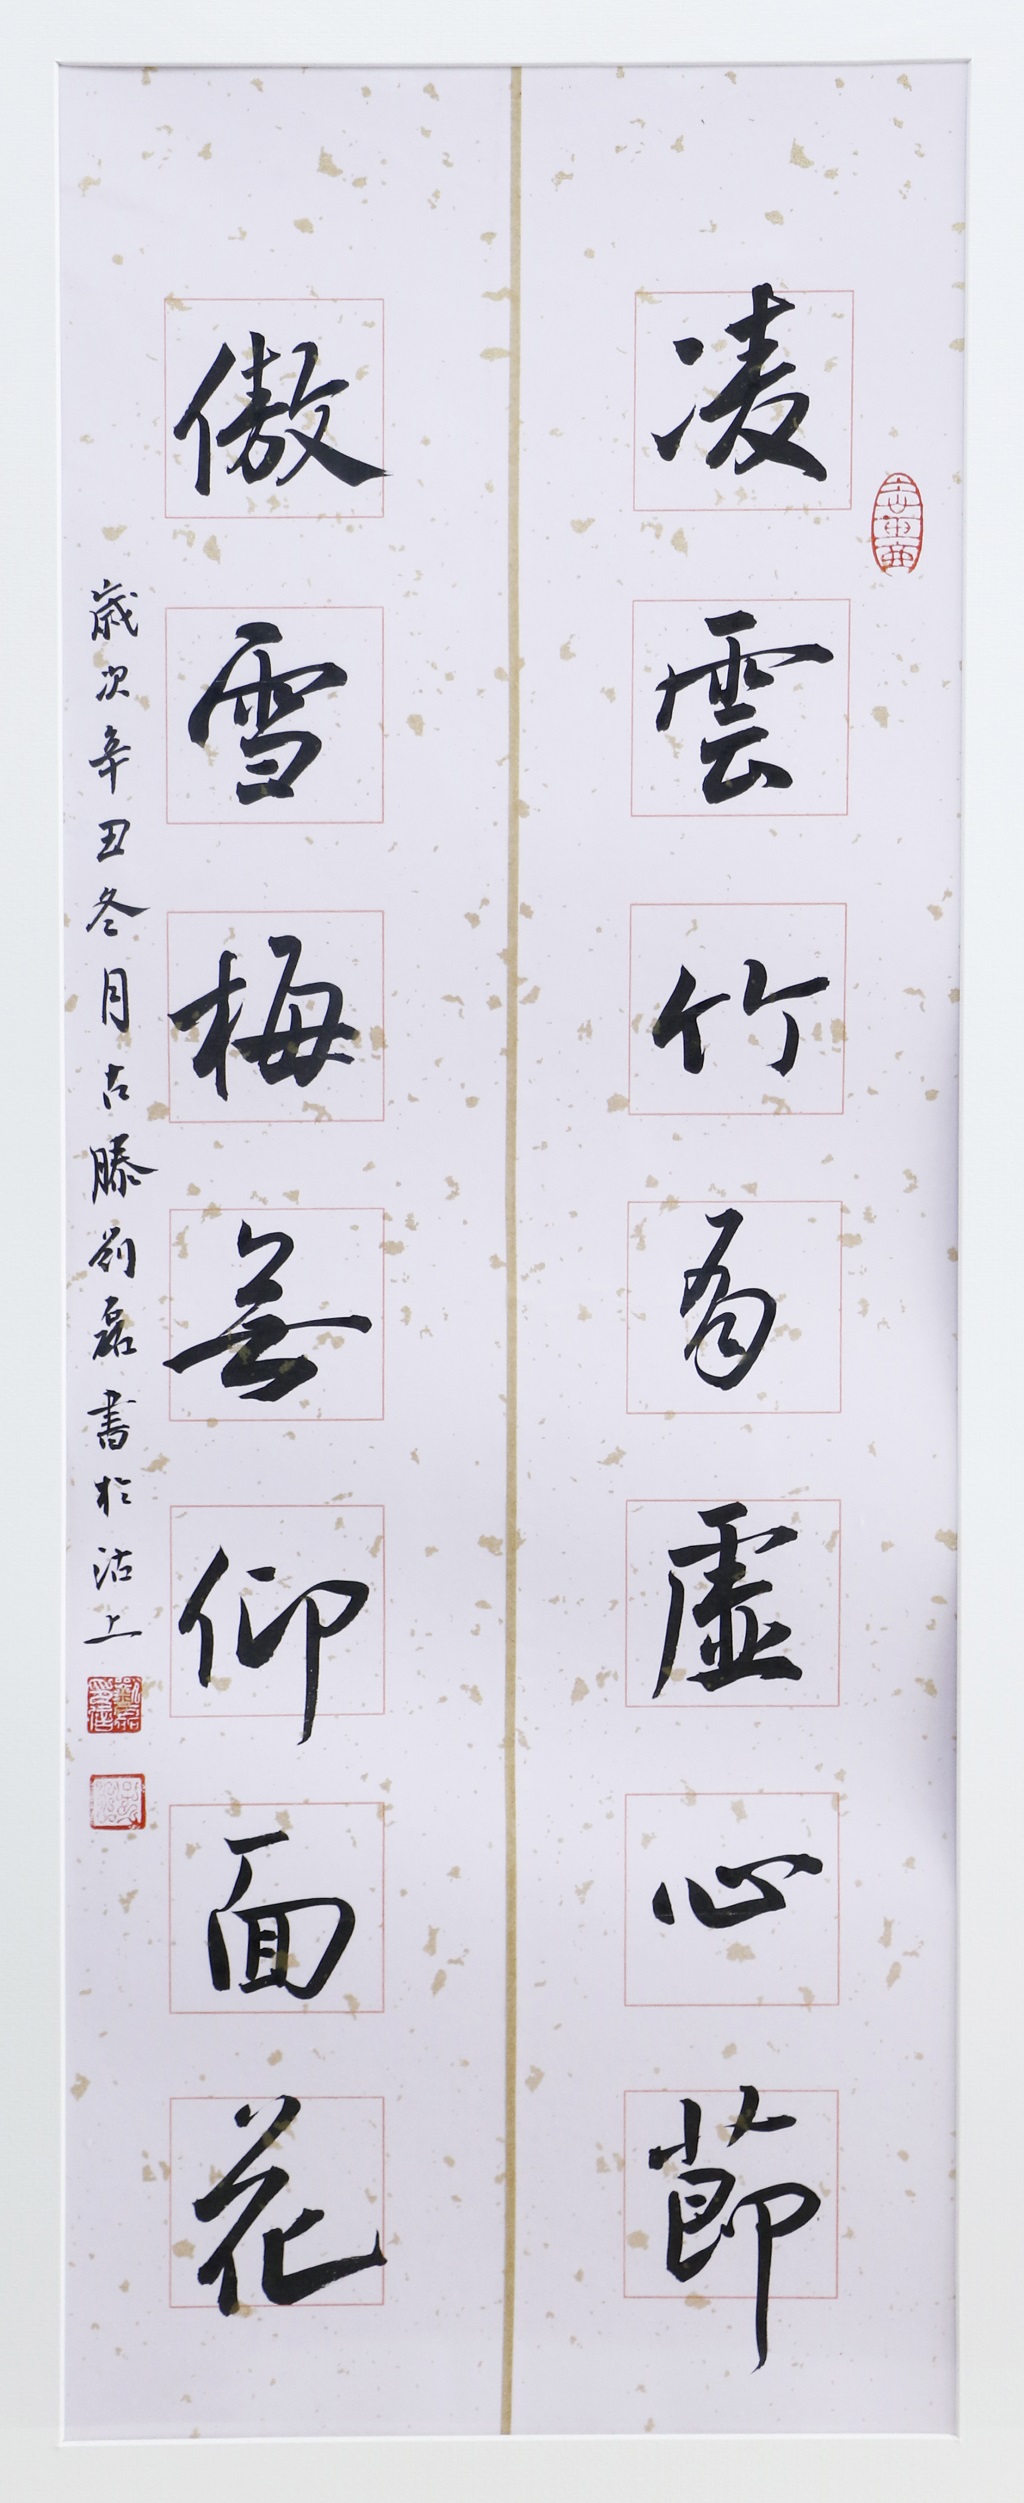 凌雲竹有虛心節
傲雪梅無仰面花
歲次辛丑冬月古滕劉磊書於沽上